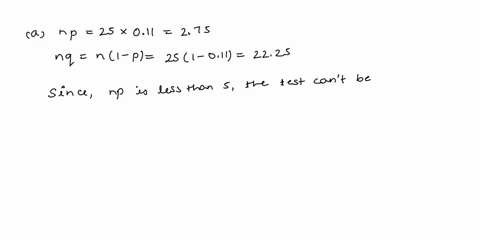 (a) np = 25 × 0.11 = 2.75
nq = n(1-p) = 25(1-0.11) = 22.25
Since, np is less than 5, the test can't be